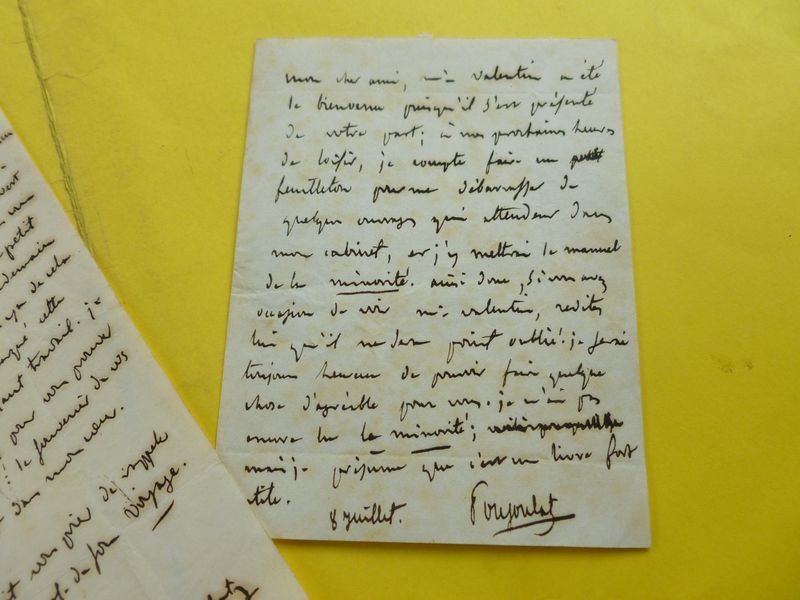 mon cher ami, mr valentin a été
le bienvenu puisqu'il s'est présenté
de votre part; à mes prochaines heures
de loisir, je compte faire un petit
feuilleton pour me débarrasser de
quelques ouvrages qui attendent dans
mon cabinet, et j'y mettrai le manuel
de la minorité. ainsi donc, si vous avez
occasion de voir mr valentin, redites
lui qu'il ne sera point oublié. je serai
toujours heureux de pouvoir faire quelque
chose d'agréable pour vous. je n'ai pas
encore lu la minorité;
mais je présume que c'est un livre fort
utile.
8 juillet. Poujoulat
petit
demain
de cela
cette
travail. je
pour vous prouver
le souvenir de vos
dans mon coeur.
voyage.